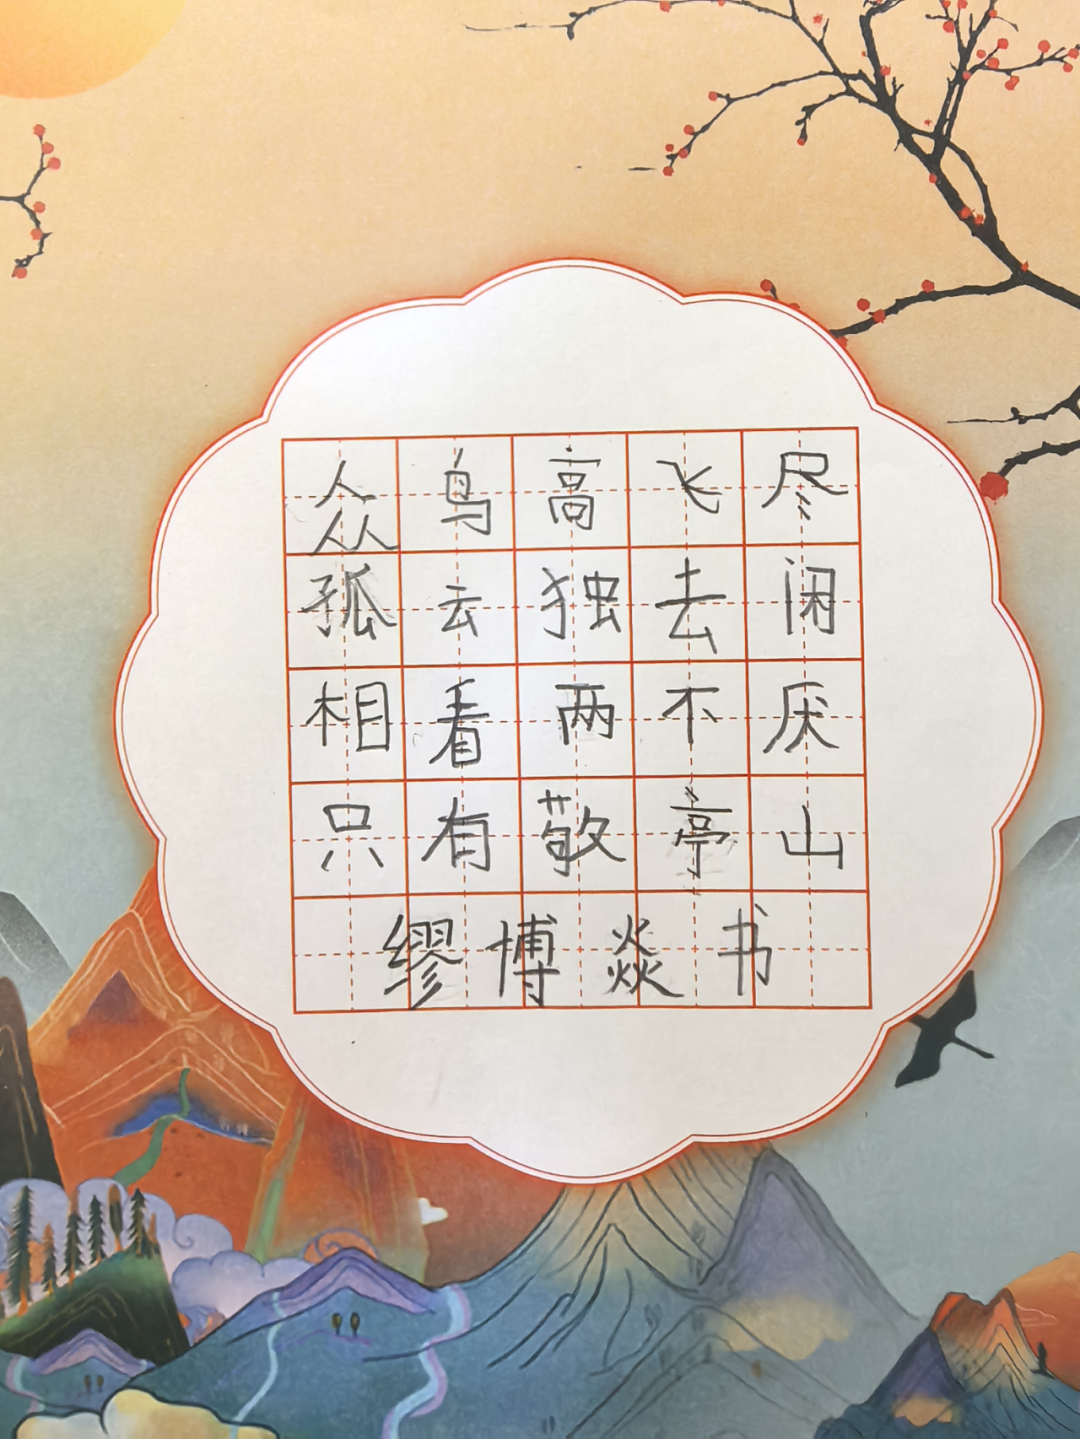 众鸟高飞尽
孤云独去闲
相看两不厌
只有敬亭山
缪博焱书